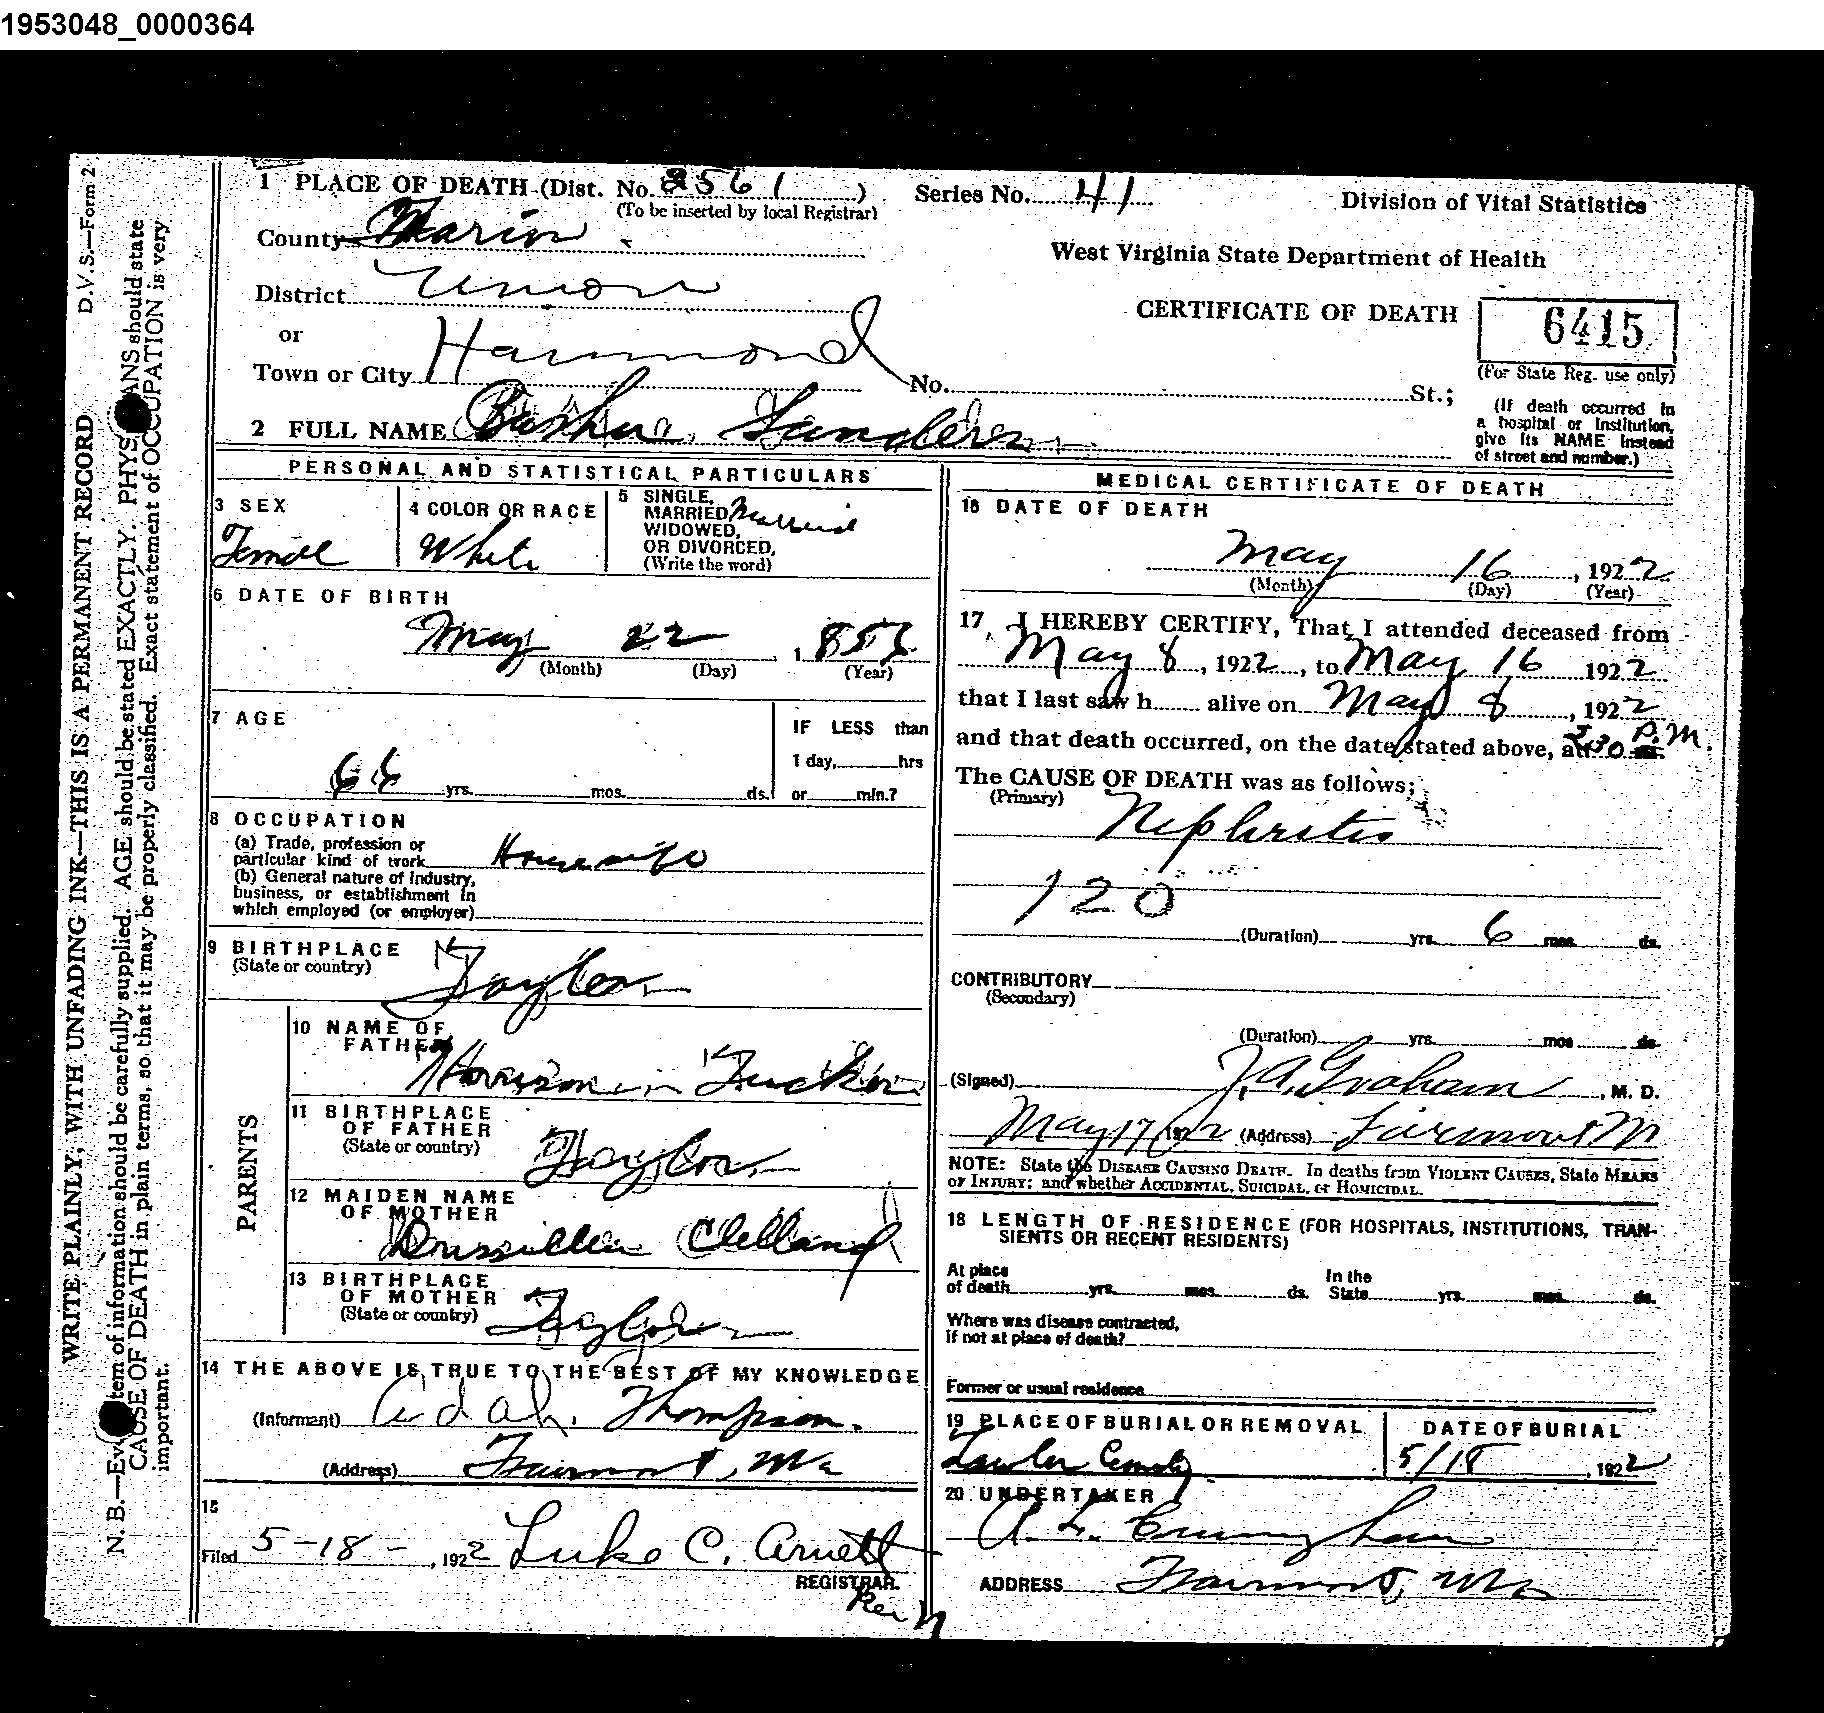 1953048_0000364
1 PLACE OF DEATH (Dist. No. 2561 )
(To be inserted by local Registrar)
Series No. 41
Division of Vital Statistics
County Marion
West Virginia State Department of Health
District Union
or
CERTIFICATE OF DEATH
6415
(For State Reg. use only)
Town or City Hammond No. St.;
(If death occurred in
a hospital or institution,
give its NAME instead
of street and number.)
2 FULL NAME Sanders
PERSONAL AND STATISTICAL PARTICULARS
3 SEX
Female
4 COLOR OR RACE
White
5 SINGLE,
MARRIED, Married
WIDOWED,
OR DIVORCED,
(Write the word)
6 DATE OF BIRTH
May 22 , 185
(Month) (Day) (Year)
7 AGE
66 yrs. mos. ds.
IF LESS than
1 day, hrs
or min.?
8 OCCUPATION
(a) Trade, profession or
particular kind of work Housewife
(b) General nature of Industry,
business, or establishment in
which employed (or employer)
9 BIRTHPLACE
(State or country) Taylor
PARENTS
10 NAME OF
FATHER
Harrison Tucker
11 BIRTHPLACE
OF FATHER
(State or country) Taylor
12 MAIDEN NAME
OF MOTHER
Drussillia Clelland
13 BIRTHPLACE
OF MOTHER
(State or country) Taylor
14 THE ABOVE IS TRUE TO THE BEST OF MY KNOWLEDGE
(Informant) Adah Thompson.
(Address) Fairmont,
15
Filed 5-18- , 1922 Luke C. Arnett
REGISTRAR.
MEDICAL CERTIFICATE OF DEATH
16 DATE OF DEATH
May 16 , 1922
(Month) (Day) (Year)
17 I HEREBY CERTIFY, That I attended deceased from
May 8 , 1922 , to May 16 1922
that I last saw h alive on May 8 , 1922
and that death occurred, on the date stated above, at 5:30 P.M.
The CAUSE OF DEATH was as follows;
(Primary)
Nephritis
120
(Duration) yrs. 6 mos. ds.
CONTRIBUTORY
(Secondary)
(Duration) yrs. mos. ds.
(Signed) J.A. Graham , M. D.
May 17 1922 (Address) Fairmont
NOTE: State the DISEASE CAUSING DEATH. In deaths from VIOLENT CAUSES, State MEANS
OF INJURY; and whether ACCIDENTAL, SUICIDAL, or HOMICIDAL.
18 LENGTH OF RESIDENCE (FOR HOSPITALS, INSTITUTIONS, TRAN-
SIENTS OR RECENT RESIDENTS)
At place
of death yrs. mos. ds.
In the
State yrs. mos. ds.
Where was disease contracted,
if not at place of death?
Former or usual residence
19 PLACE OF BURIAL OR REMOVAL
DATE OF BURIAL
5/18 , 1922
20 UNDERTAKER
ADDRESS Fairmont,
D.V.S.—Form 2
WRITE PLAINLY, WITH UNFADING INK—THIS IS A PERMANENT RECORD
N. B.—Every item of information should be carefully supplied. AGE should be stated EXACTLY. PHYSICIANS should state
CAUSE OF DEATH in plain terms, so that it may be properly classified. Exact statement of OCCUPATION is very
important.